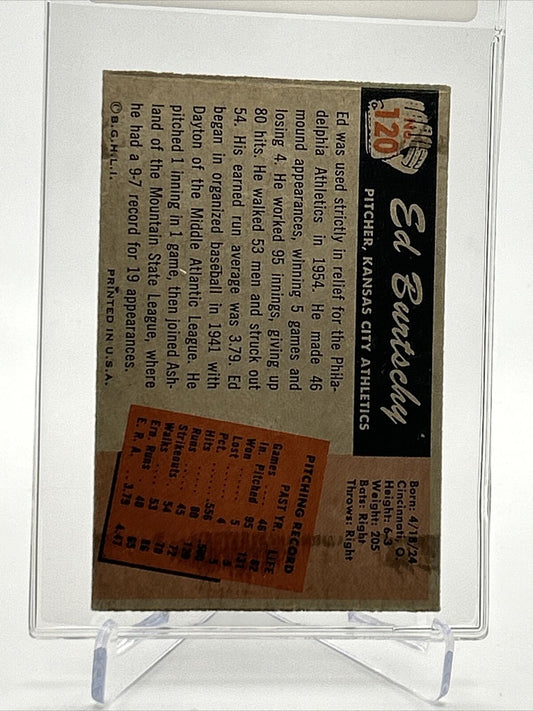 NO.
120
Ed Burtschy
PITCHER, KANSAS CITY ATHLETICS
Born: 4/18/24
Cincinnati, O.
Height: 6-3
Weight: 205
Bats: Right
Throws: Right
Ed was used strictly in relief for the Phila-
delphia Athletics in 1954. He made 46
mound appearances, winning 5 games and
losing 4. He worked 95 innings, giving up
80 hits. He walked 53 men and struck out
54. His earned run average was 3.79. Ed
began in organized baseball in 1941 with
Dayton of the Middle Atlantic League. He
pitched 1 inning in 1 game, then joined Ash-
land of the Mountain State League, where
he had a 9-7 record for 19 appearances.
© B.G.H.L.I. PRINTED IN U.S.A.
PITCHING RECORD
PAST YR. LIFE
Games 46 82
In. Pitched 95 131
Won 5 5
Lost 4 5
Pct. .556
Hits 80
Runs 45
Strikeouts 54
Walks 53 86
Ern. Runs 40 65
E. R. A. 3.79 4.47